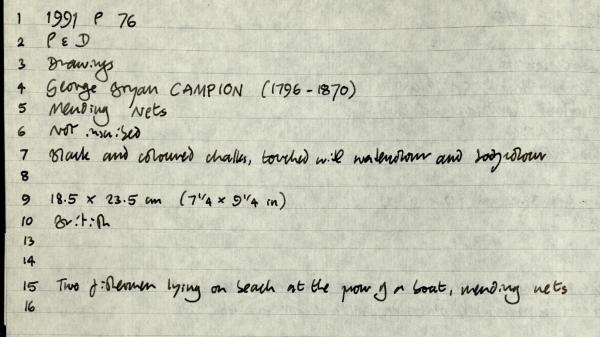 1 1991 P 76
2 P & D
3 Drawings
4 George Bryan CAMPION (1796-1870)
5 Mending Nets
6 Not inscribed
7 Black and coloured chalks, touched with watercolour and bodycolour
8
9 18.5 x 23.5 cm (7 1/4 x 9 1/4 in)
10 British
13
14
15 Two fishermen lying on beach at the prow of a boat, mending nets
16